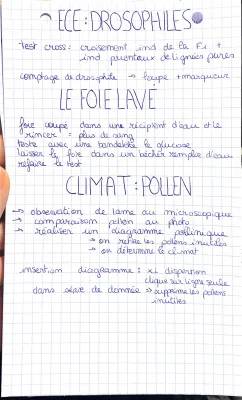 ECE : DROSOPHILES
test cross : croisement ind de la F1 +
ind parentaux de lignées pures
comptage de drosophile → loupe + marqueur
LE FOIE LAVÉ
foie coupé dans une récipient d'eau et le
rincer : plus de sang
teste avec une bandelette le glucose
laisser le foie dans un bécher remplie d'eau
refaire le test
CLIMAT : POLLEN
→ observation de lame au microscopique
→ comparaison pollen au photo
→ réaliser un diagramme pollinique
→ on retire les pollens inutiles
→ on détermine le climat
insertion diagramme : xi dispersion
clique sur ligne seule
dans série de donnée → supprime les pollens
inutiles